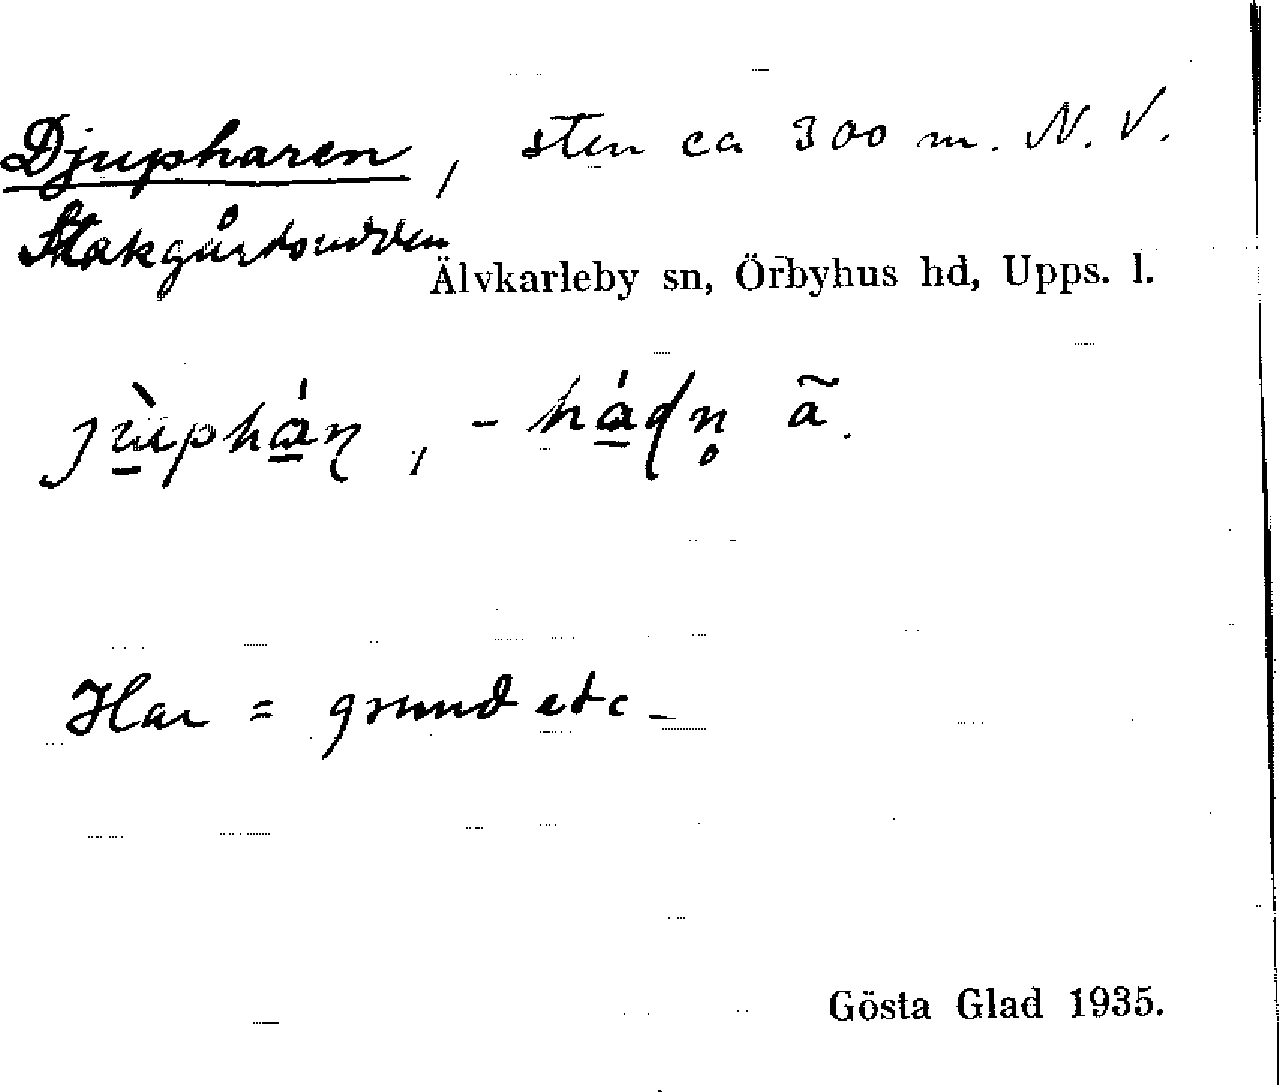 Djupharen, sten ca 300 m. N. V.
Stakgårdsudden
Älvkarleby sn, Örbyhus hd, Upps. l.
jùphán, -hádn ã.
Har = grund etc -
Gösta Glad 1935.